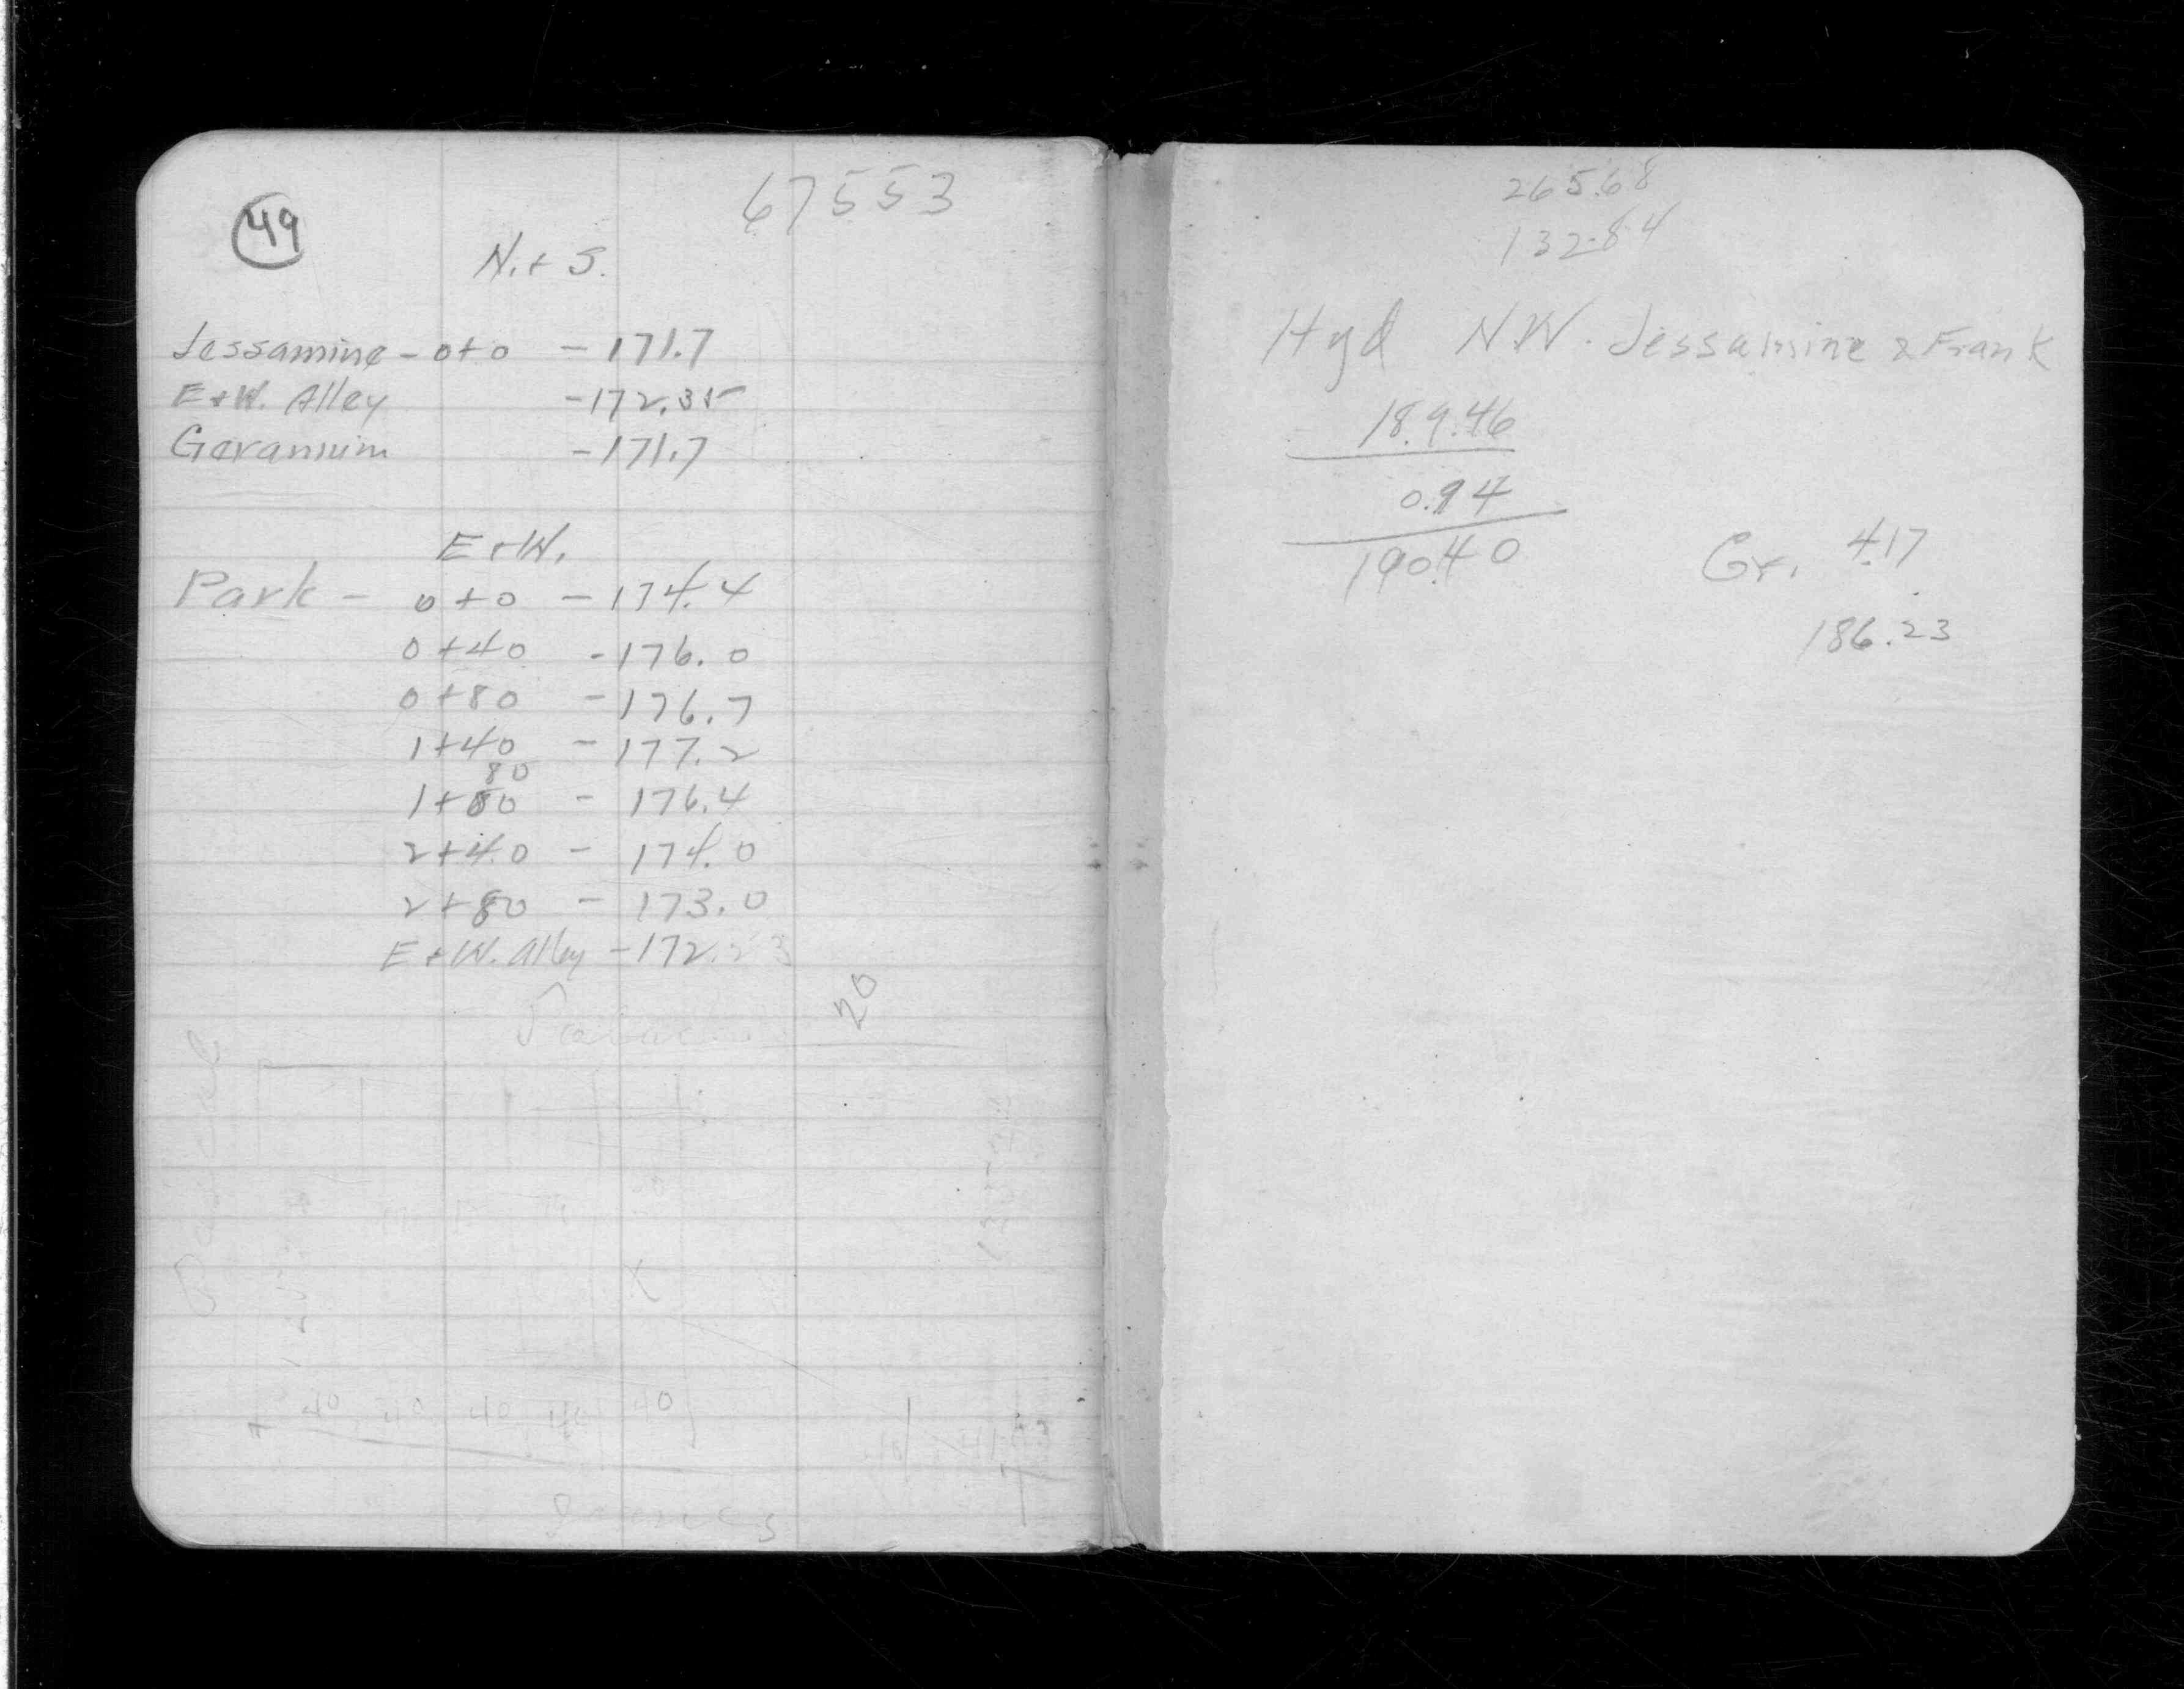 49
67553
N. + S.
Jessamine - 0+0 - 171.7
E+W. Alley - 172.35
Geranium - 171.7
E+W.
Park - 0+0 - 174.4
0+40 - 176.0
0+80 - 176.7
1+40 - 177.2
80
1+80 - 176.4
2+40 - 174.0
2+80 - 173.0
E+W. Alley - 172.
20
X
40 40 40 40 40
265.68
132.84
Hyd N.W. Jessamine & Frank
189.46
0.94
190.40
Gr. 4.17
186.23